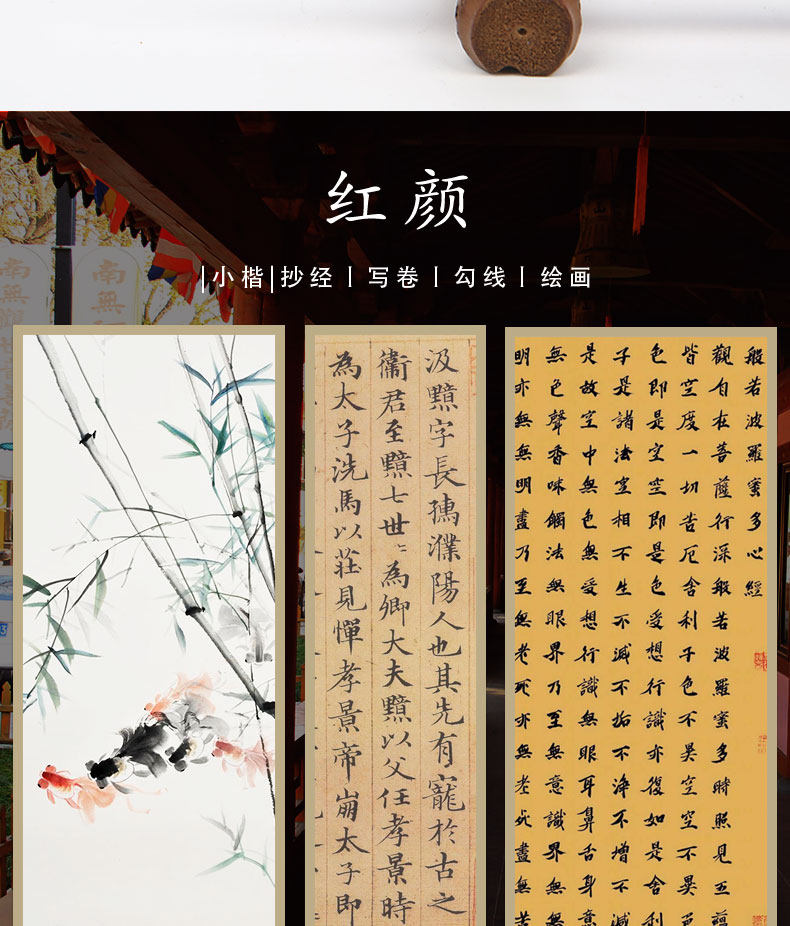 红颜
|小楷|抄经丨写卷丨勾线丨绘画
南無觀世音
南無
汲黯字長孺濮陽人也其先有寵於古之
衞君至黯七世〻為卿大夫黯以父任孝景時
為太子洗馬以莊見憚孝景帝崩太子即
般若波羅蜜多心經
觀自在菩薩行深般若波羅蜜多時照見五蘊
皆空度一切苦厄舍利子色不異空空不異色
色即是空空即是色受想行識亦復如是舍利
子是諸法空相不生不滅不垢不淨不增不減
是故空中無色無受想行識無眼耳鼻舌身意
無色聲香味觸法無眼界乃至無意識界無無
明亦無無明盡乃至無老死亦無老死盡無苦